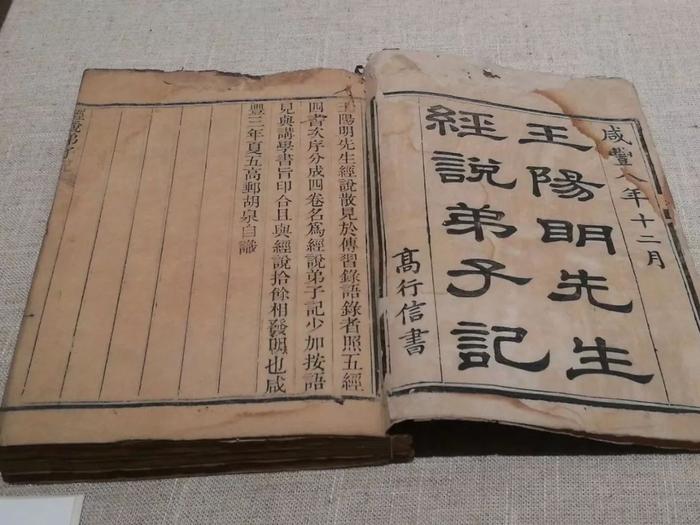 咸豐八年十二月
王陽明先生
經說弟子記
高行信書
王陽明先生經說散見於傳習錄語錄者照五經
四書次序分成四卷名為經說弟子記少加按語
見與講學書旨印合且與經說拾餘相發明也咸
豐三年夏五高郵胡泉自識
經說弟子